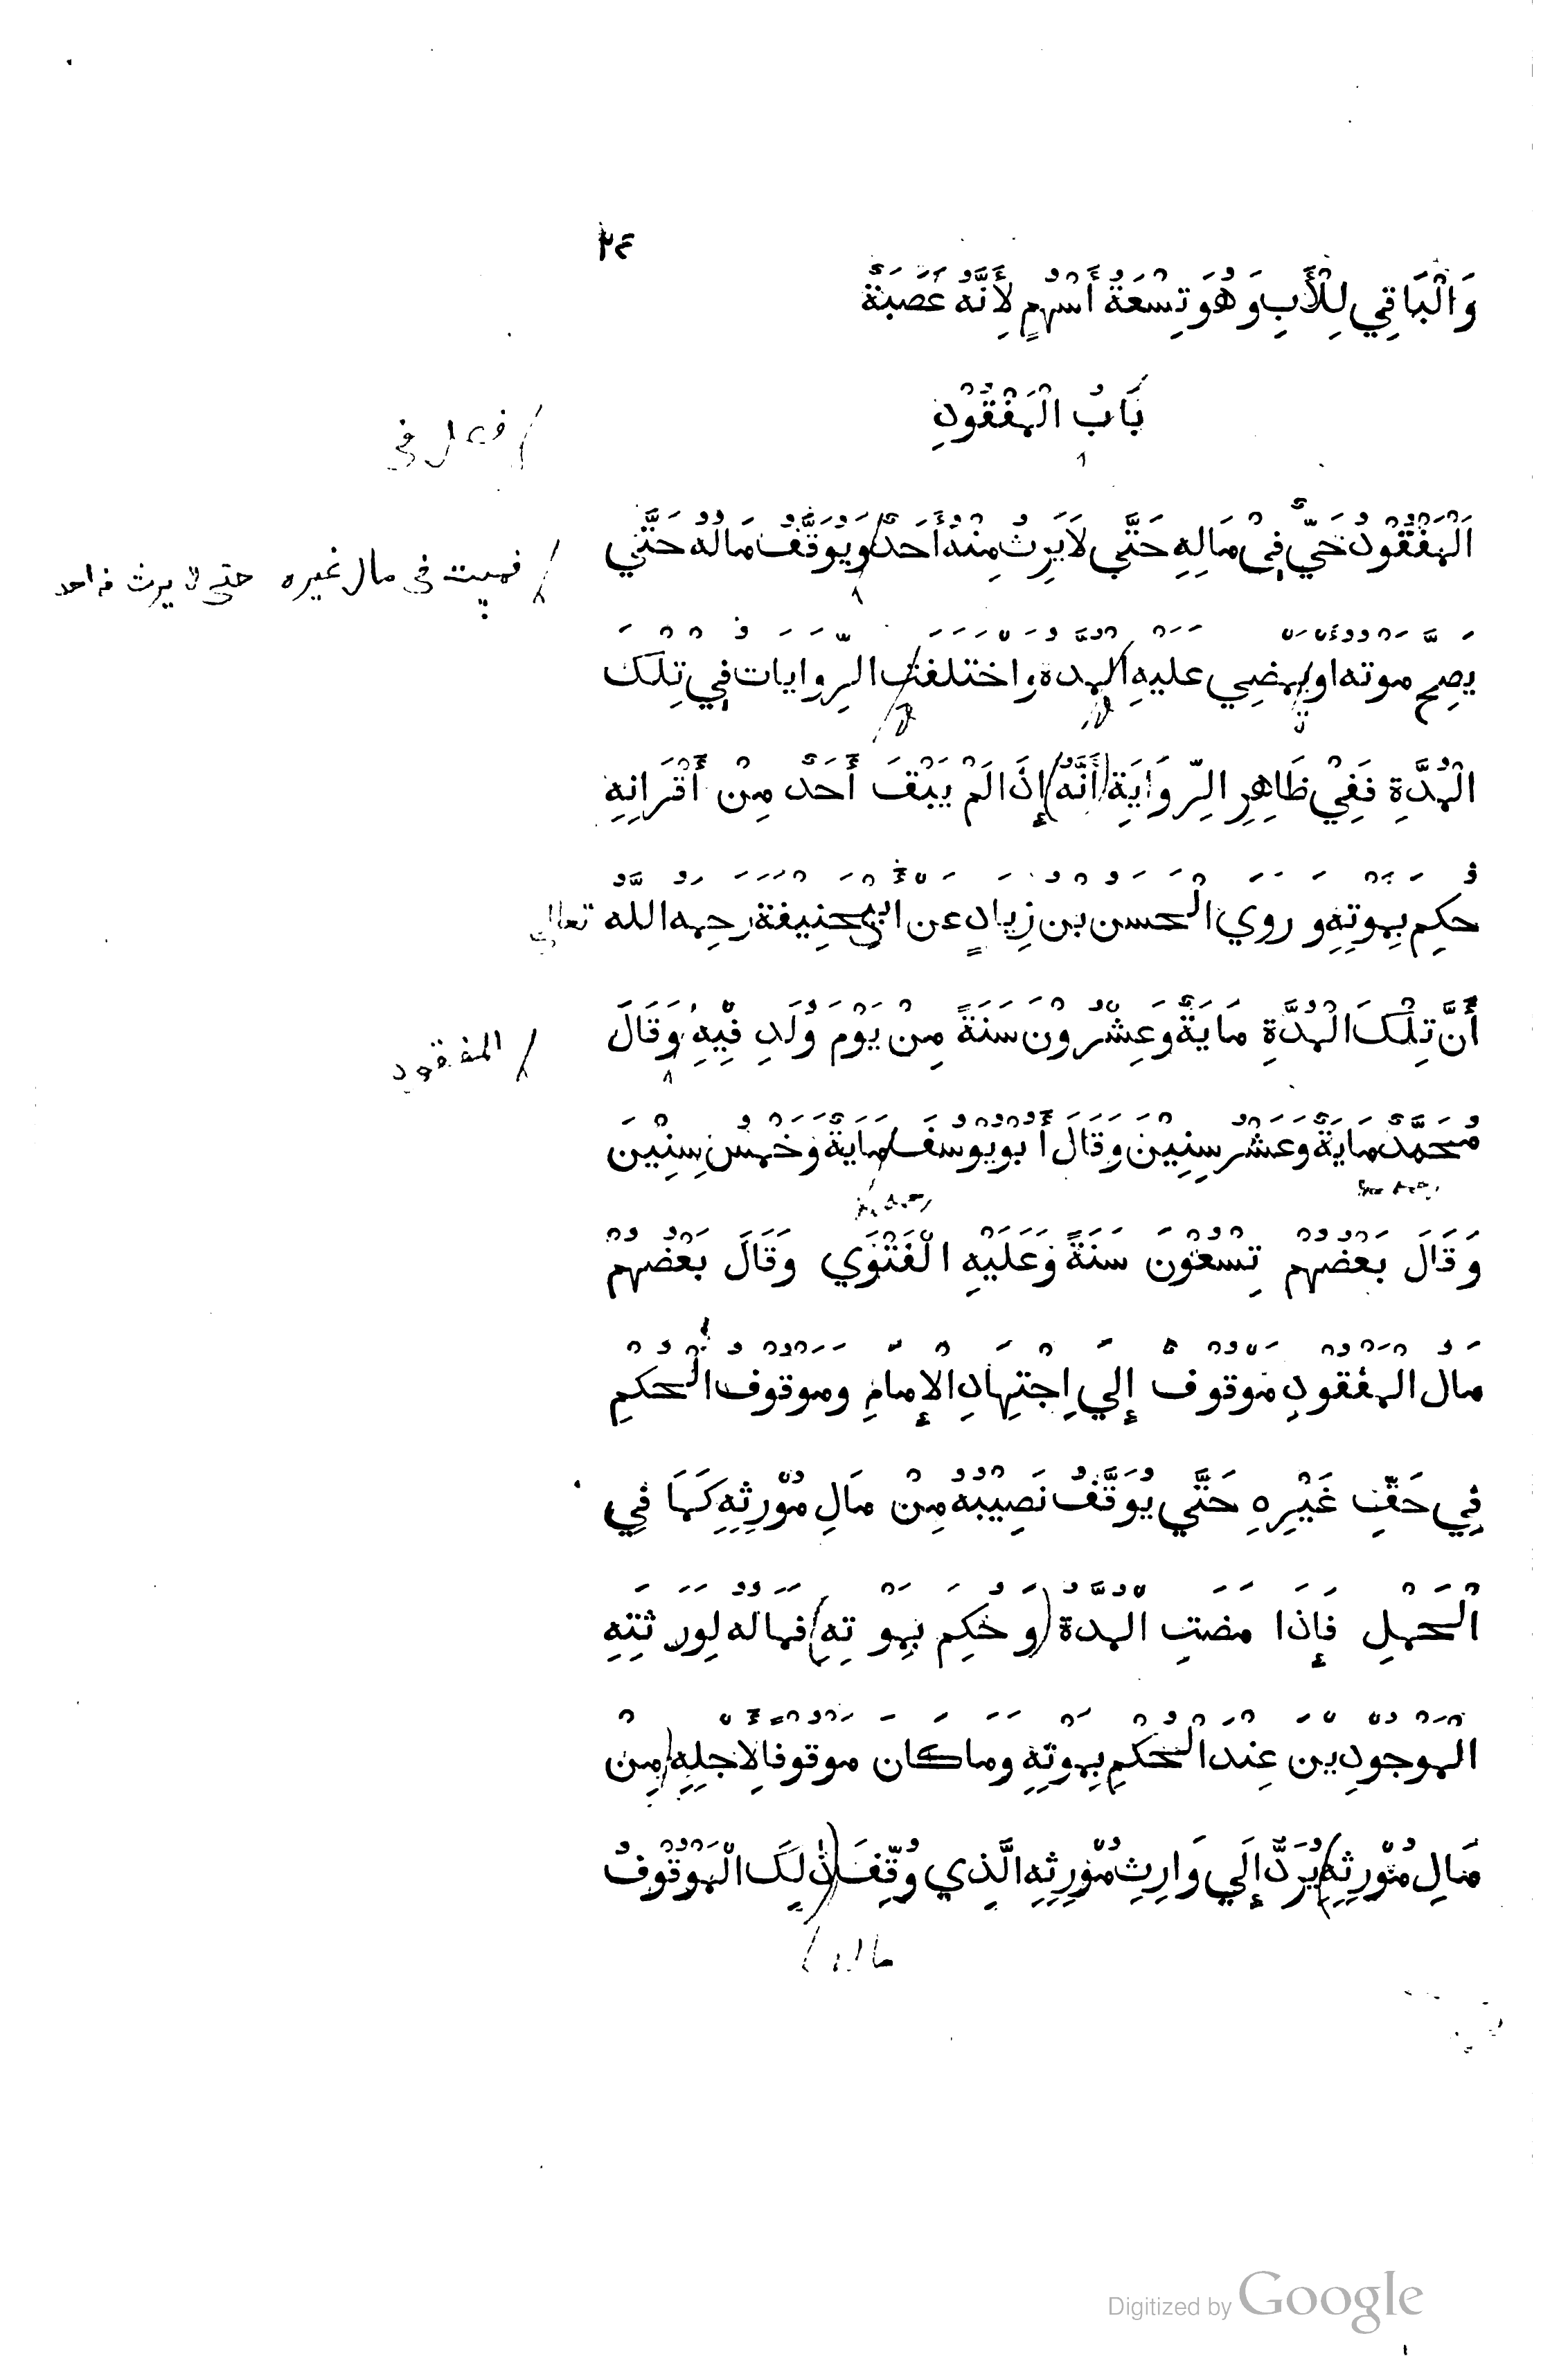 ٣٤
وَالْبَاقِي لِلْأَبِ وَهُوَ تِسْعَةُ أَسْهُمٍ لِأَنَّهُ عَصَبَةٌ
بَابُ الْمَفْقُوْدِ
فصل فى
اَلْمَفْقُوْدُ حَيٌّ فِيْ مَالِهِ حَتَّي لَا يَرِثُ مِنْهُ أَحَدٌ وَيُوَقَّفُ مَالُهُ حَتَّي
فميت فى مال غيره حتى لا يرث منه احد
يَصِحَّ مَوْتُهُ أَوْ يَمْضِي عَلَيْهِ الْمُدَّةُ وَاخْتَلَفَتِ الرِّوَايَات فِي تِلْكَ
الْمُدَّةِ فَفِيْ ظَاهِرِ الرِّوَايَةِ (أَنَّهُ) إِذَا لَمْ يَبْقَ أَحَدٌ مِنْ أَقْرَانِهِ
حُكِمَ بِمَوْتِهِ وَرَوَي الْحَسَنُ بْنُ زِيَادٍ عَنْ أَبِيْ حَنِيفَةَ رَحِمَهُ اللَّهُ تعالى
أَنَّ تِلْكَ الْمُدَّةِ مَايَةٌ وَعِشْرُوْنَ سَنَةً مِنْ يَوْمَ وُلِدَ فِيْهِ وَقَالَ
المفقود
مُحَمَّدٌ مَايَةٌ وَعَشْرُ سِنِيْنَ وَقَالَ أَبُو يُوْسُفَ مَايَةٌ وَخَمْسُ سِنِيْنَ
وَقَالَ بَعْضُهُمْ تِسْعُوْنَ سَنَةً وَعَلَيْهِ الْفَتْوَي وَقَالَ بَعْضُهُمْ
مَالُ الْمَفْقُوْدِ مَوْقُوْفٌ إِلَي اِجْتِهَادِ الْإِمَامِ وَمَوْقُوْفُ الْحُكْمِ
فِي حَقِّ غَيْرِهِ حَتَّي يُوَقَّفُ نَصِيْبُهُ مِنْ مَالِ مُوْرِثِهِ كَمَا فِي
الْحَمْلِ فَإِذَا مَضَتِ الْمُدَّةُ (وَحُكِمَ بِمَوْتِهِ) فَمَالُهُ لِوَرَثَتِهِ
الْمَوْجُوْدِيْنَ عِنْدَ الْحُكْمِ بِمَوْتِهِ وَمَا كَانَ مَوْقُوْفًا لِأَجْلِهِ (مِنْ
مَالِ مُوْرِثِهِ) يُرَدُّ إِلَي وَارِثِ مُوْرِثِهِ الَّذِي وُقِّفَ (ذٰلِكَ الْمَوْقُوْفُ
ماله
Digitized by Google